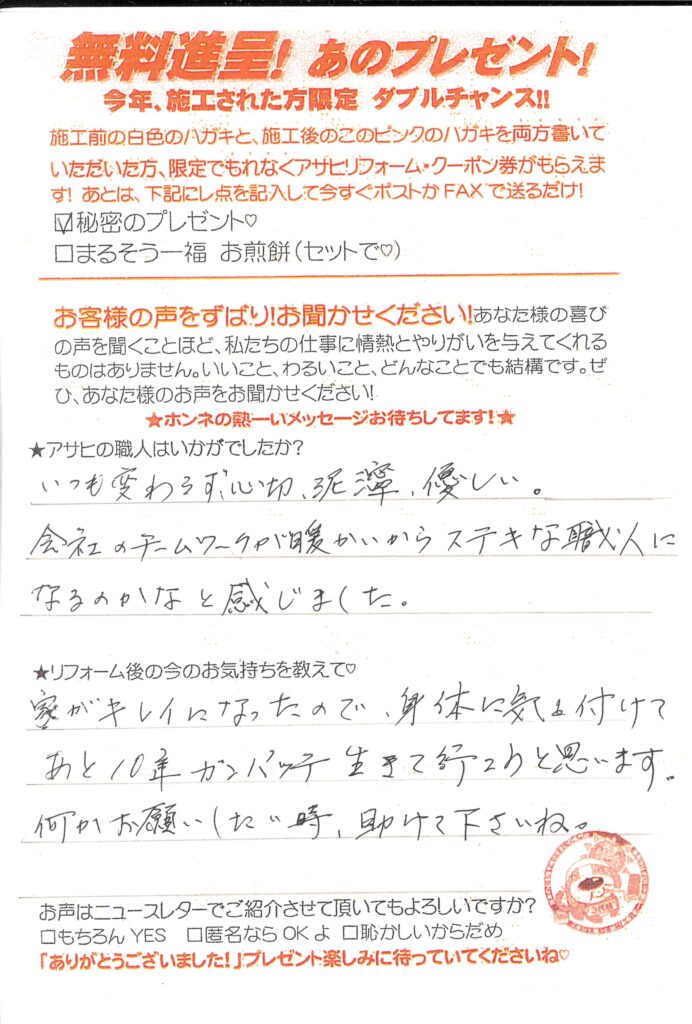 無料進呈! あのプレゼント!
今年、施工された方限定 ダブルチャンス!!
施工前の白色のハガキと、施工後のこのピンクのハガキを両方書いて
いただいた方、限定でもれなくアサヒリフォーム・クーポン券がもらえま
す! あとは、下記にレ点を記入して今すぐポストかFAXで送るだけ!
☑秘密のプレゼント♡
□まるそう一福 お煎餅(セットで♡)
お客様の声をずばり!お聞かせください!あなた様の喜び
の声を聞くことほど、私たちの仕事に情熱とやりがいを与えてくれる
ものはありません。いいこと、わるいこと、どんなことでも結構です。ぜ
ひ、あなた様のお声をお聞かせください!
★ホンネの熱ーいメッセージお待ちしてます!★
★アサヒの職人はいかがでしたか?
いつも変わらず、心切、泥濘、優しい。
会社のチームワークが暖かいからステキな職人に
なるのかなと感じました。
★リフォーム後の今のお気持ちを教えて♡
家がキレイになったので、身体に気を付けて
あと10年ガンバッテ生きて行こうと思います。
何かお願いしたい時、助けて下さいね。
お声はニュースレターでご紹介させて頂いてもよろしいですか?
□もちろんYES □匿名ならOKよ □恥かしいからだめ
「ありがとうございました!」プレゼント楽しみに待っていてくださいね♡